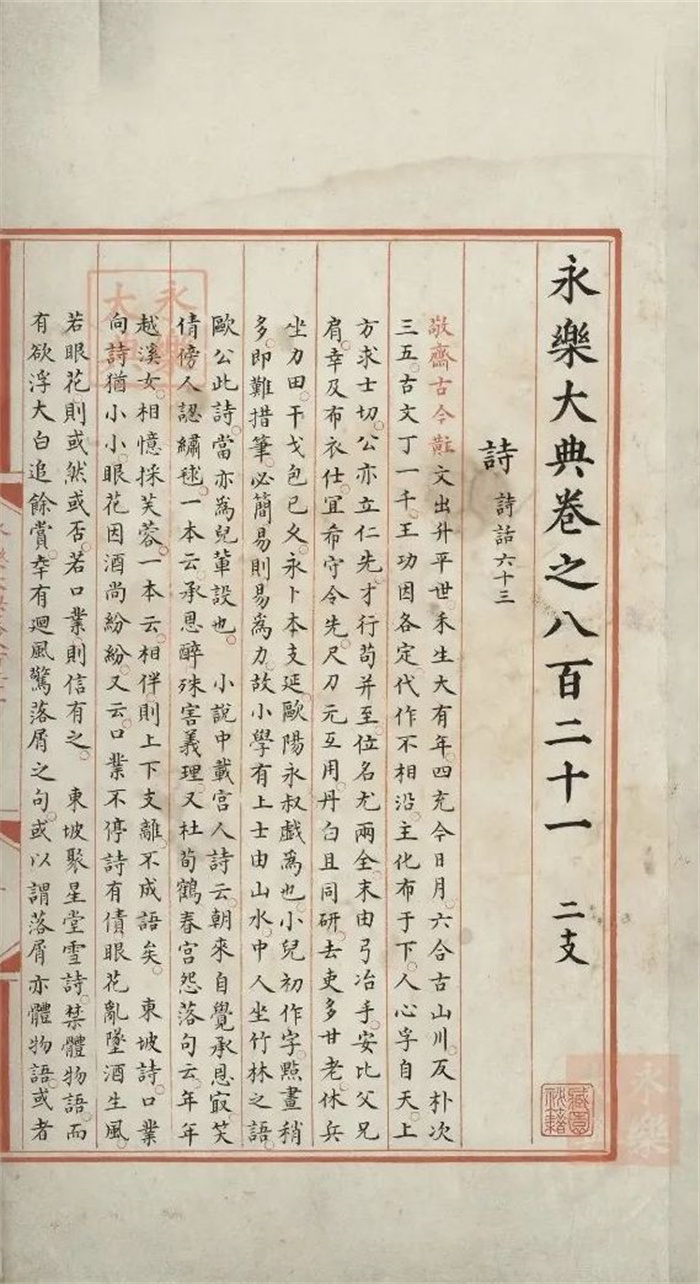 永樂大典卷之八百二十一 二支
詩 詩話六十三
敬齋古今黈文出升平世。禾生大有年。四充今日月。六合古山川。反朴次
三五。古文丁一千。王功因各定。代作不相沿。主化布于下。人心孚自天。上
方求士切。公亦立仁先。才行苟并至。位名尤兩全。末由弓冶手。安比父兄
肩。幸及布衣仕。宜希守令先。尺刀元互用。丹白且同研。去吏多甘老。休兵
坐力田。干戈包已久。永卜本支延。歐陽永叔戲為也。小兒初作字。點畫稍
多。即難措筆。必簡易則易為力。故小學有上士由山水。中人坐竹林之語。
歐公此詩。當亦為兒輩設也。 小說中載宮人詩云。朝來自覺承恩㝡。笑
倩傍人認繡毬。一本云。承恩醉。殊害義理。又杜荀鶴春宮怨落句云。年年
越溪女。相憶採芙蓉。一本云。相伴則上下支離。不成語矣。 東坡詩。口業
向詩猶小小。眼花因酒尚紛紛。又云。口業不停詩有債。眼花亂墜酒生風。
若眼花。則或然或否。若口業。則信有之。 東坡聚星堂雪詩。禁體物語。而
有欲浮大白追餘賞。幸有迴風驚落屑之句。或以謂落屑亦體物語。或者
永樂大典
藏園秘籍
永樂